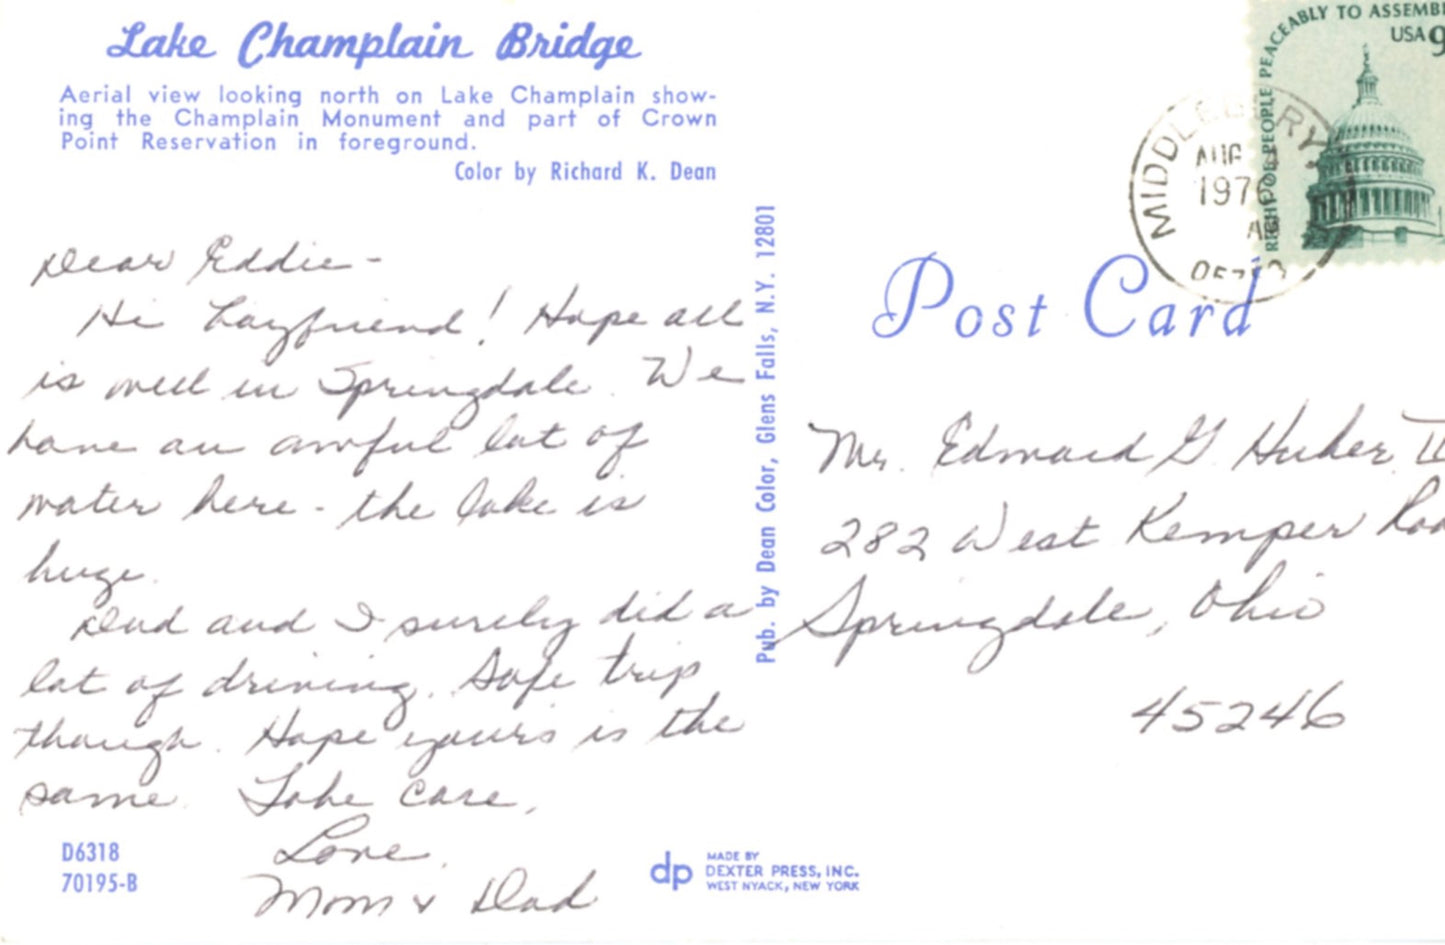 Lake Champlain Bridge
Aerial view looking north on Lake Champlain show-
ing the Champlain Monument and part of Crown
Point Reservation in foreground.
Color by Richard K. Dean
Dear Eddie -
Hi Boyfriend! Hope all
is well in Springdale. We
have an awful lot of
water here - the lake is
huge.
Dad and I surely did a
lot of driving. Safe trip
though. Hope yours is the
same. Take care,
Love,
Mom & Dad
D6318
70195-B
Pub. by Dean Color, Glens Falls, N.Y. 12801
dp
MADE BY
DEXTER PRESS, INC.
WEST NYACK, NEW YORK
RIGHT OF PEOPLE PEACEABLY TO ASSEMB
USA 9
MIDDLEBURY,
AUG
1976
Post Card
Mr. Edward G. Huber II
282 West Kemper Roa
Springdale, Ohio
45246